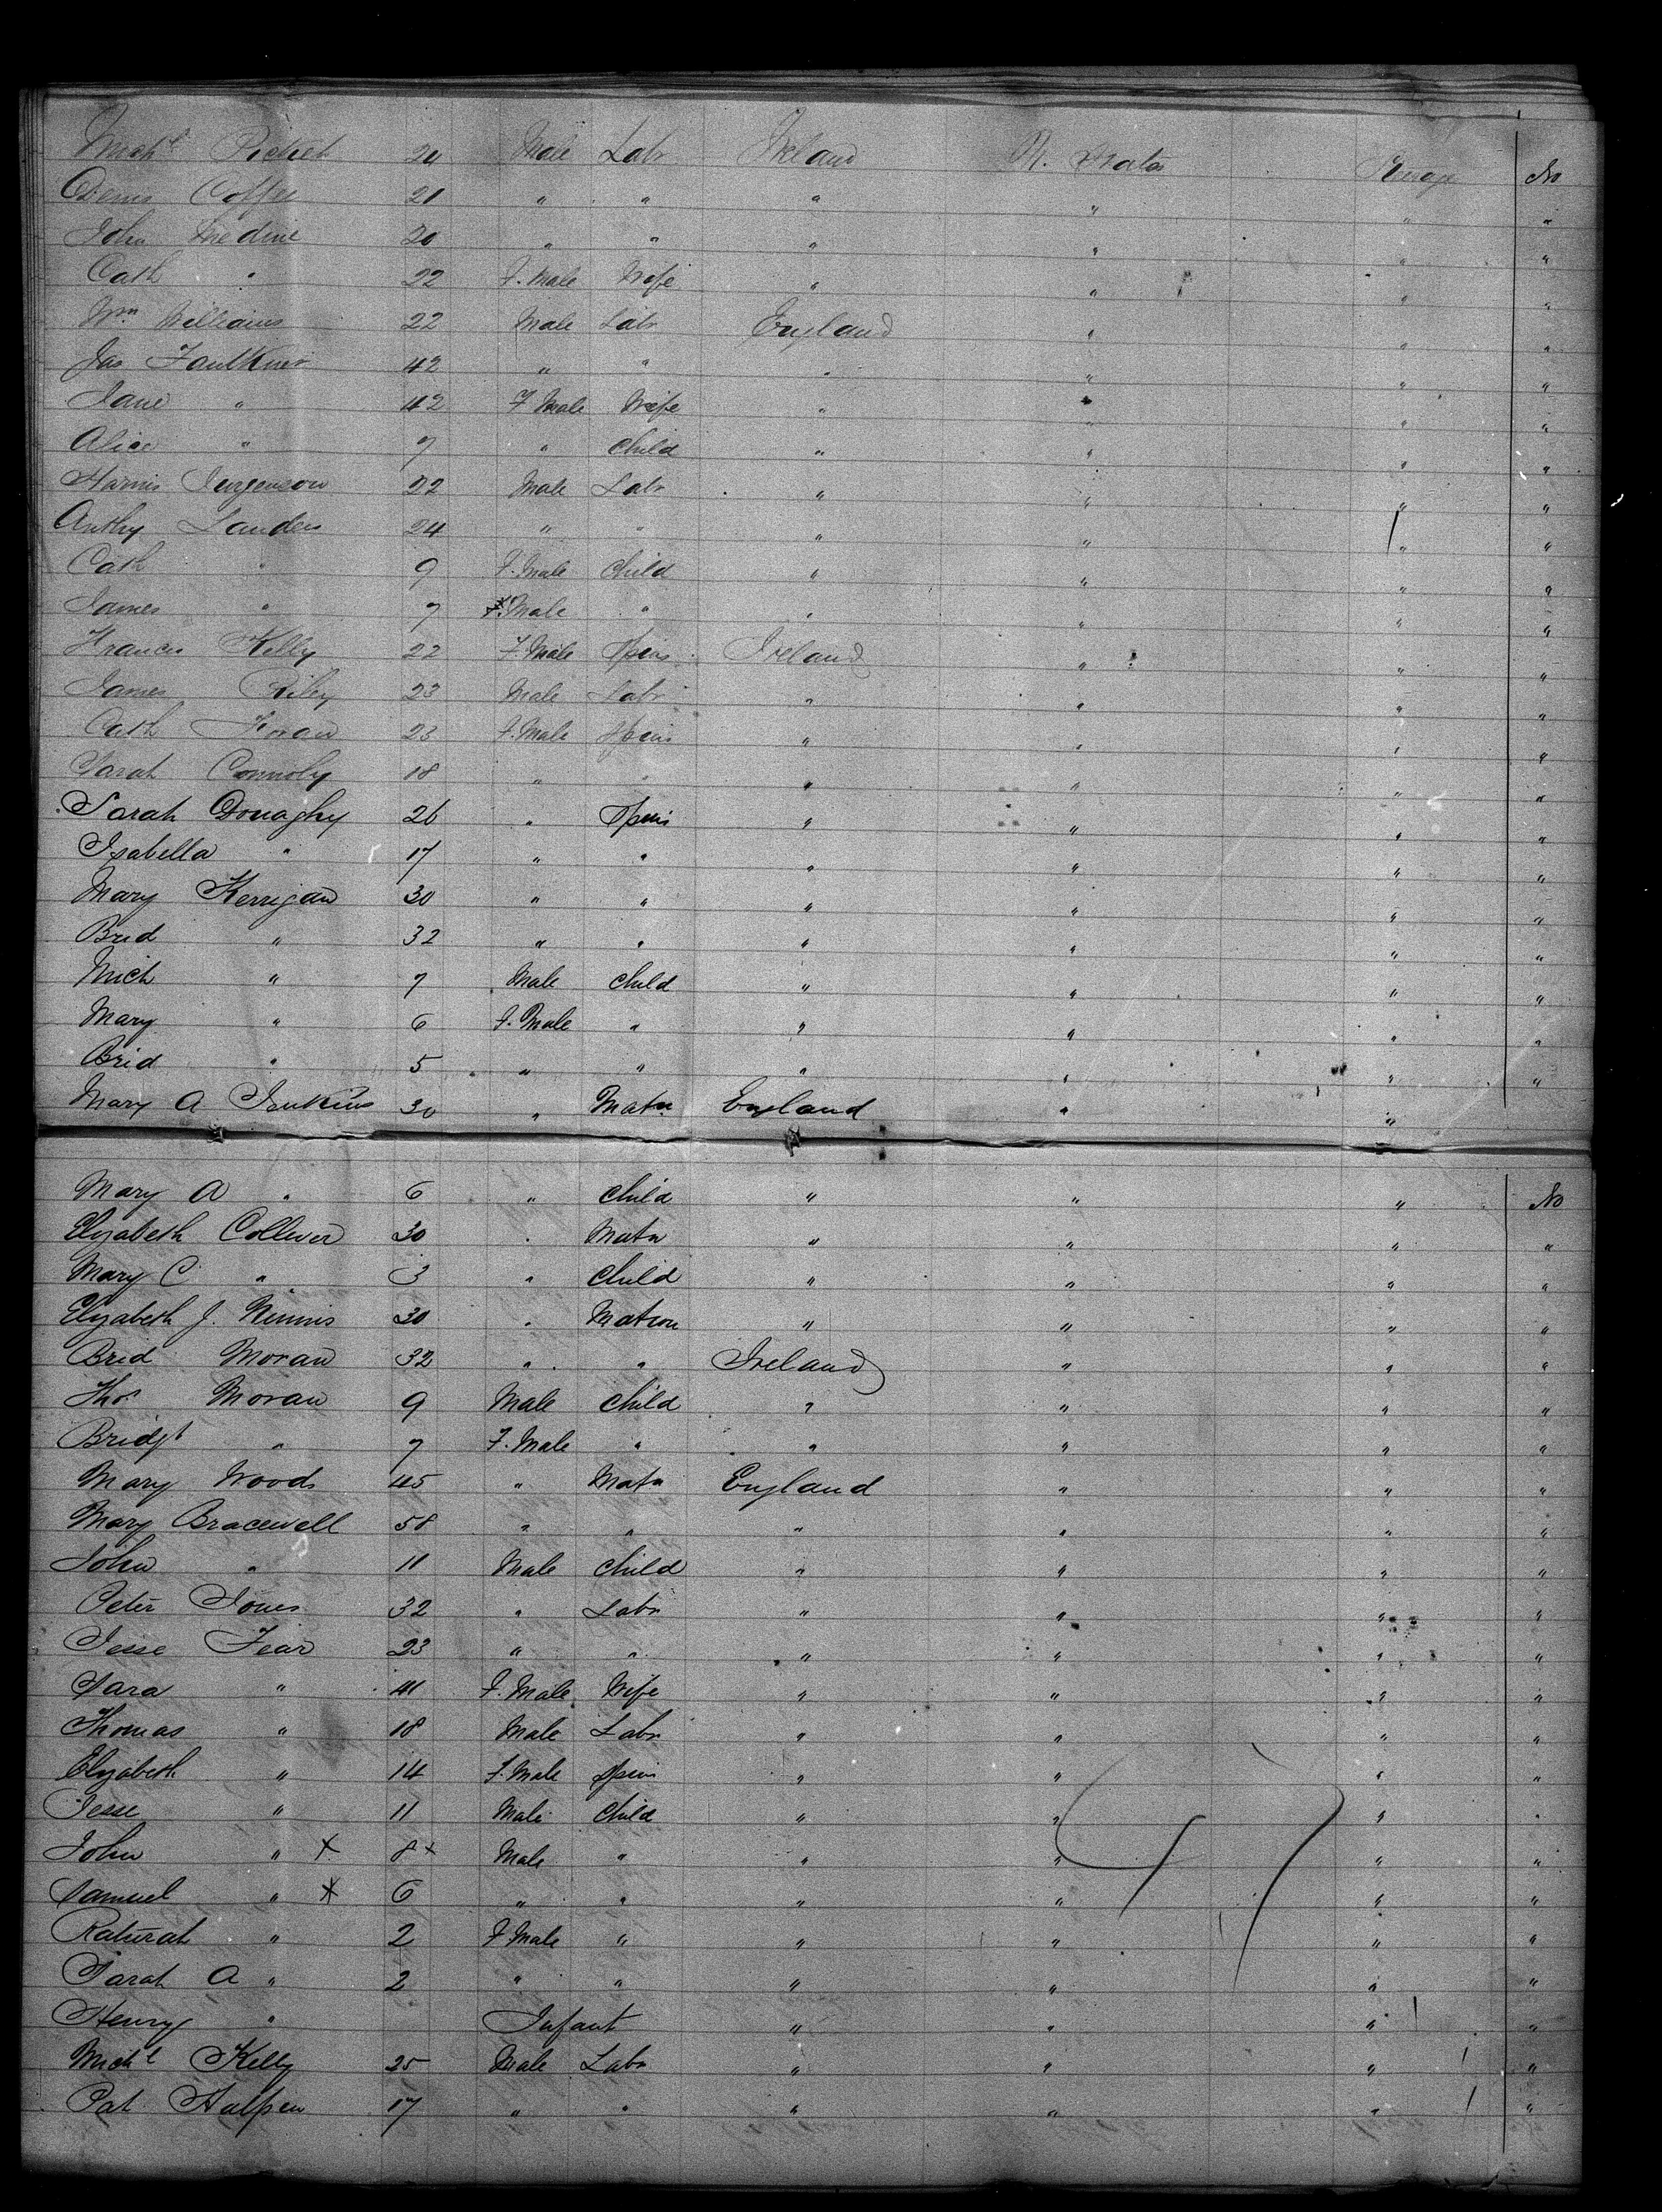 Michl 20 Male Labr Ireland U. States Steerage No
Denis Coffee 21 " " " " " "
John Medine 20 " " " " " "
Cath " 22 F. Male Wife " " " "
Wm Williams 22 Male Labr England " " "
Jas Faulkner 42 " " " " " "
Jane " 42 F Male Wife " " " "
Alice " 7 " Child " " " "
Harris Jurgenson 22 Male Labr " " " "
Anthy Landers 24 " " " " " "
Cath " 9 F. Male Child " " " "
James " 7 Male " " " " "
Frances Kelly 22 F. Male Spins Ireland " " "
James Riley 23 Male Labr " " " "
Cath 23 F. Male Spins " " " "
Sarah Connoly 18 " " " " " "
Sarah Donaghy 26 " Spins " " " "
Isabella " 17 " " " " " "
Mary Kerrigan 30 " " " " " "
Brid " 32 " " " " " "
Mich " 7 Male Child " " " "
Mary " 6 F. Male " " " " "
Brid " 5 " " " " " "
Mary A Jenkins 30 " Matn England " "
Mary A " 6 " Child " " " No
Elizabeth Colliver 30 " Matn " " " "
Mary C " 3 " Child " " " "
Elizabeth J. Ninnis 30 " Matron " " " "
Brid Moran 32 " " Ireland " " "
Thos Moran 9 Male Child " " " "
Bridgt " 7 F. Male " " " " "
Mary Woods 45 " Matn England " " "
Mary Bracewell 58 " " " " " "
John " 11 Male Child " " " "
Peter Jones 32 " Labr " " " "
Jesse Fear 23 " " " " " "
Sara " 41 F. Male Wife " " " "
Thomas " 18 Male Labr " " " "
Elizabeth " 14 F. Male Spin " " " "
Jesse " 11 Male Child " " " "
John " X 8 x Male " " " " "
Samuel " X 6 " " " " " "
Katurah " 2 F Male " " " " "
Sarah A " 2 " " " " " "
Henry " Infant " " " "
Michl Kelly 25 Male Labr " " " "
Pat Halpin 17 " " " " " "